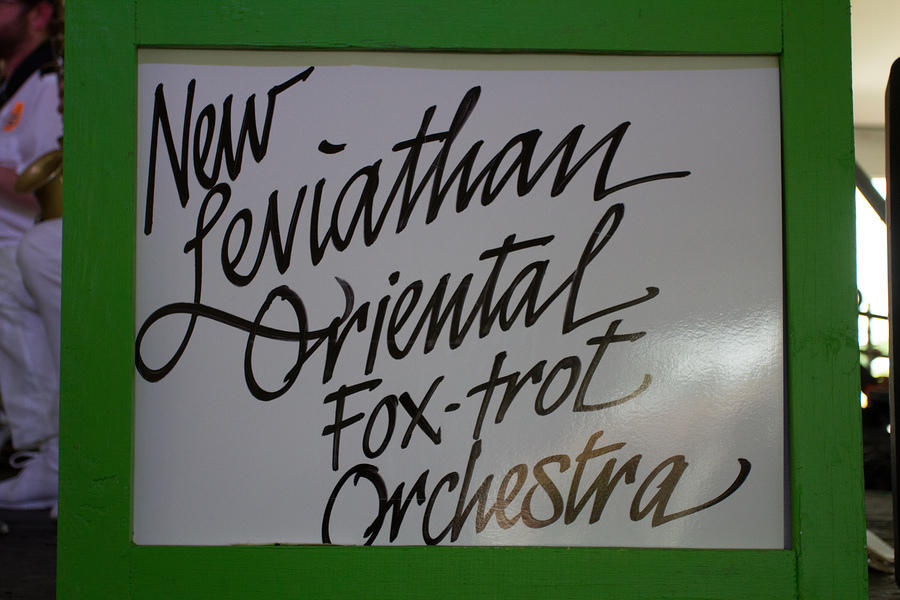 New
Leviathan
Oriental
Fox-trot
Orchestra